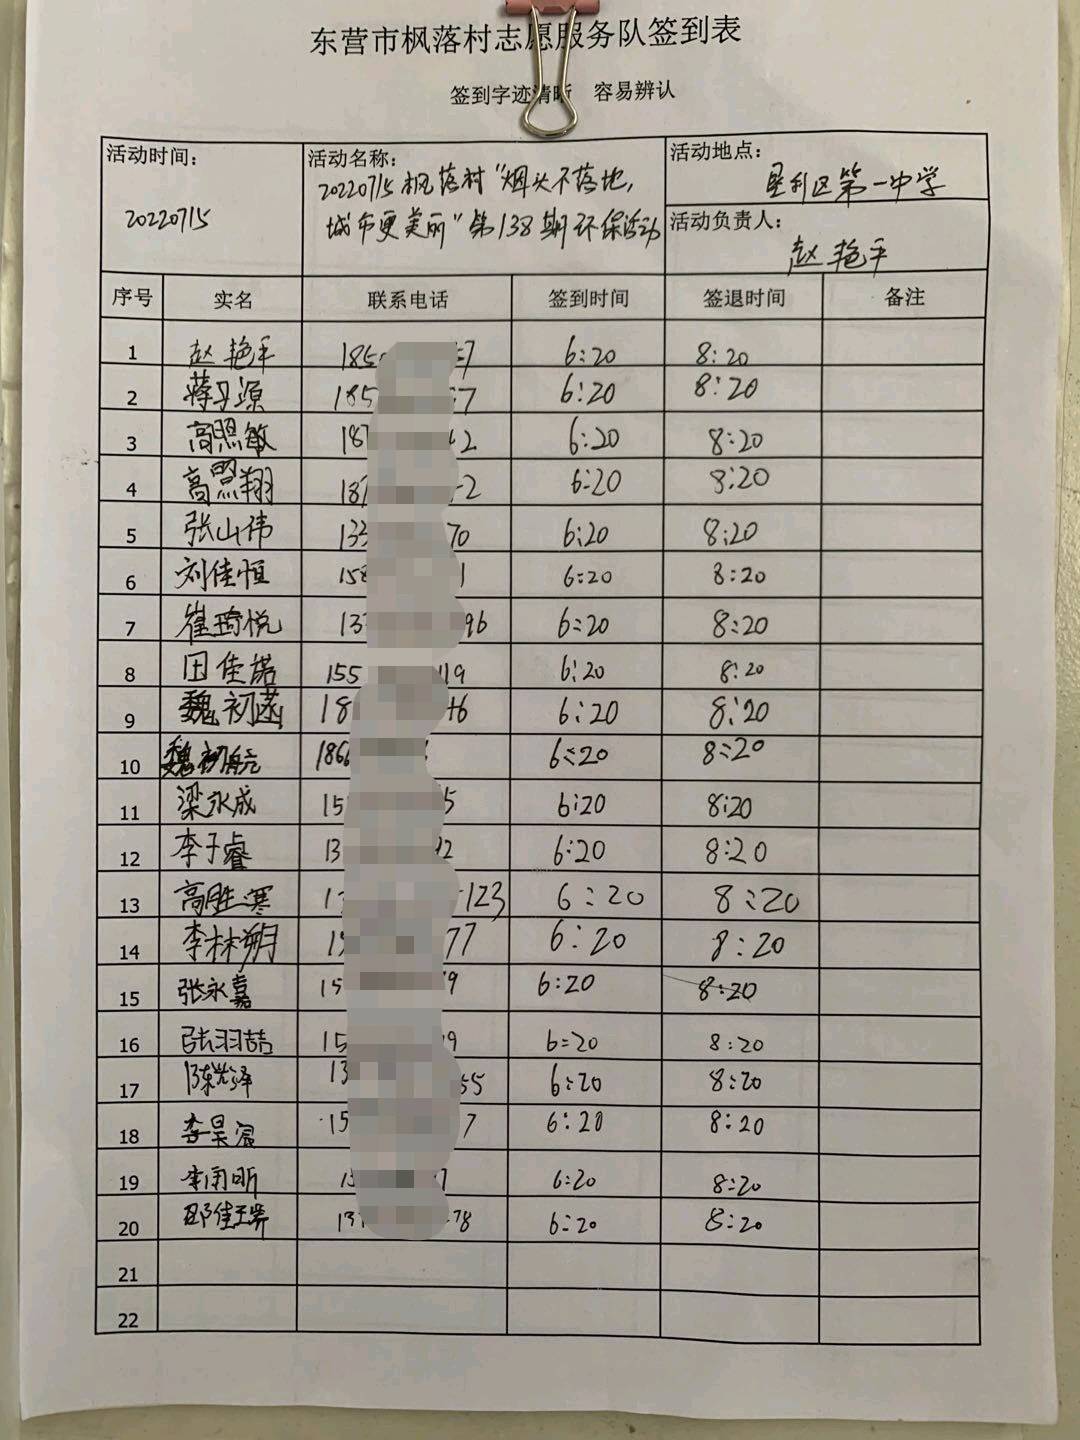 东营市枫落村志愿服务队签到表
签到字迹清晰 容易辨认
活动时间：
20220715
活动名称：
20220715枫落村“烟头不落地，
城市更美丽”第138期环保活动
活动地点：
垦利区第一中学
活动负责人：
赵艳平
序号 实名 联系电话 签到时间 签退时间 备注
1 赵艳平 185 7 6:20 8:20
2 蒋子源 185 7 6:20 8:20
3 高照敏 187 2 6:20 8:20
4 高照翔 187 2 6:20 8:20
5 张山伟 133 70 6:20 8:20
6 刘佳恒 158 1 6:20 8:20
7 崔琦悦 133 96 6:20 8:20
8 田佳诺 155 119 6:20 8:20
9 魏初菡 18 46 6:20 8:20
10 魏初航 186 6:20 8:20
11 梁永成 15 5 6:20 8:20
12 李子睿 13 92 6:20 8:20
13 高胜寒 13 123 6:20 8:20
14 李林朔 15 77 6:20 8:20
15 张永嘉 15 9 6:20 8:20
16 张羽喆 15 9 6:20 8:20
17 陈 泽 13 55 6:20 8:20
18 李昊宸 15 7 6:20 8:20
19 李雨昕 15 7 6:20 8:20
20 邵佳 137 78 6:20 8:20
21
22